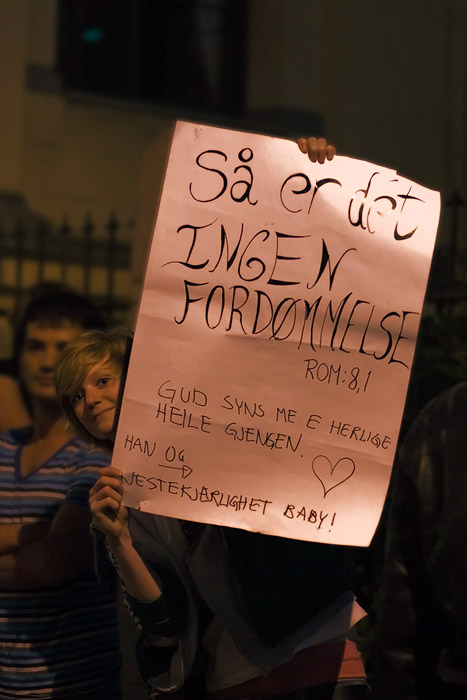 Så er det
INGEN
FORDØMMELSE
ROM:8,1
GUD SYNS ME E HERLIGE
HEILE GJENGEN.
HAN OG
→
NESTEKJÆRLIGHET BABY!